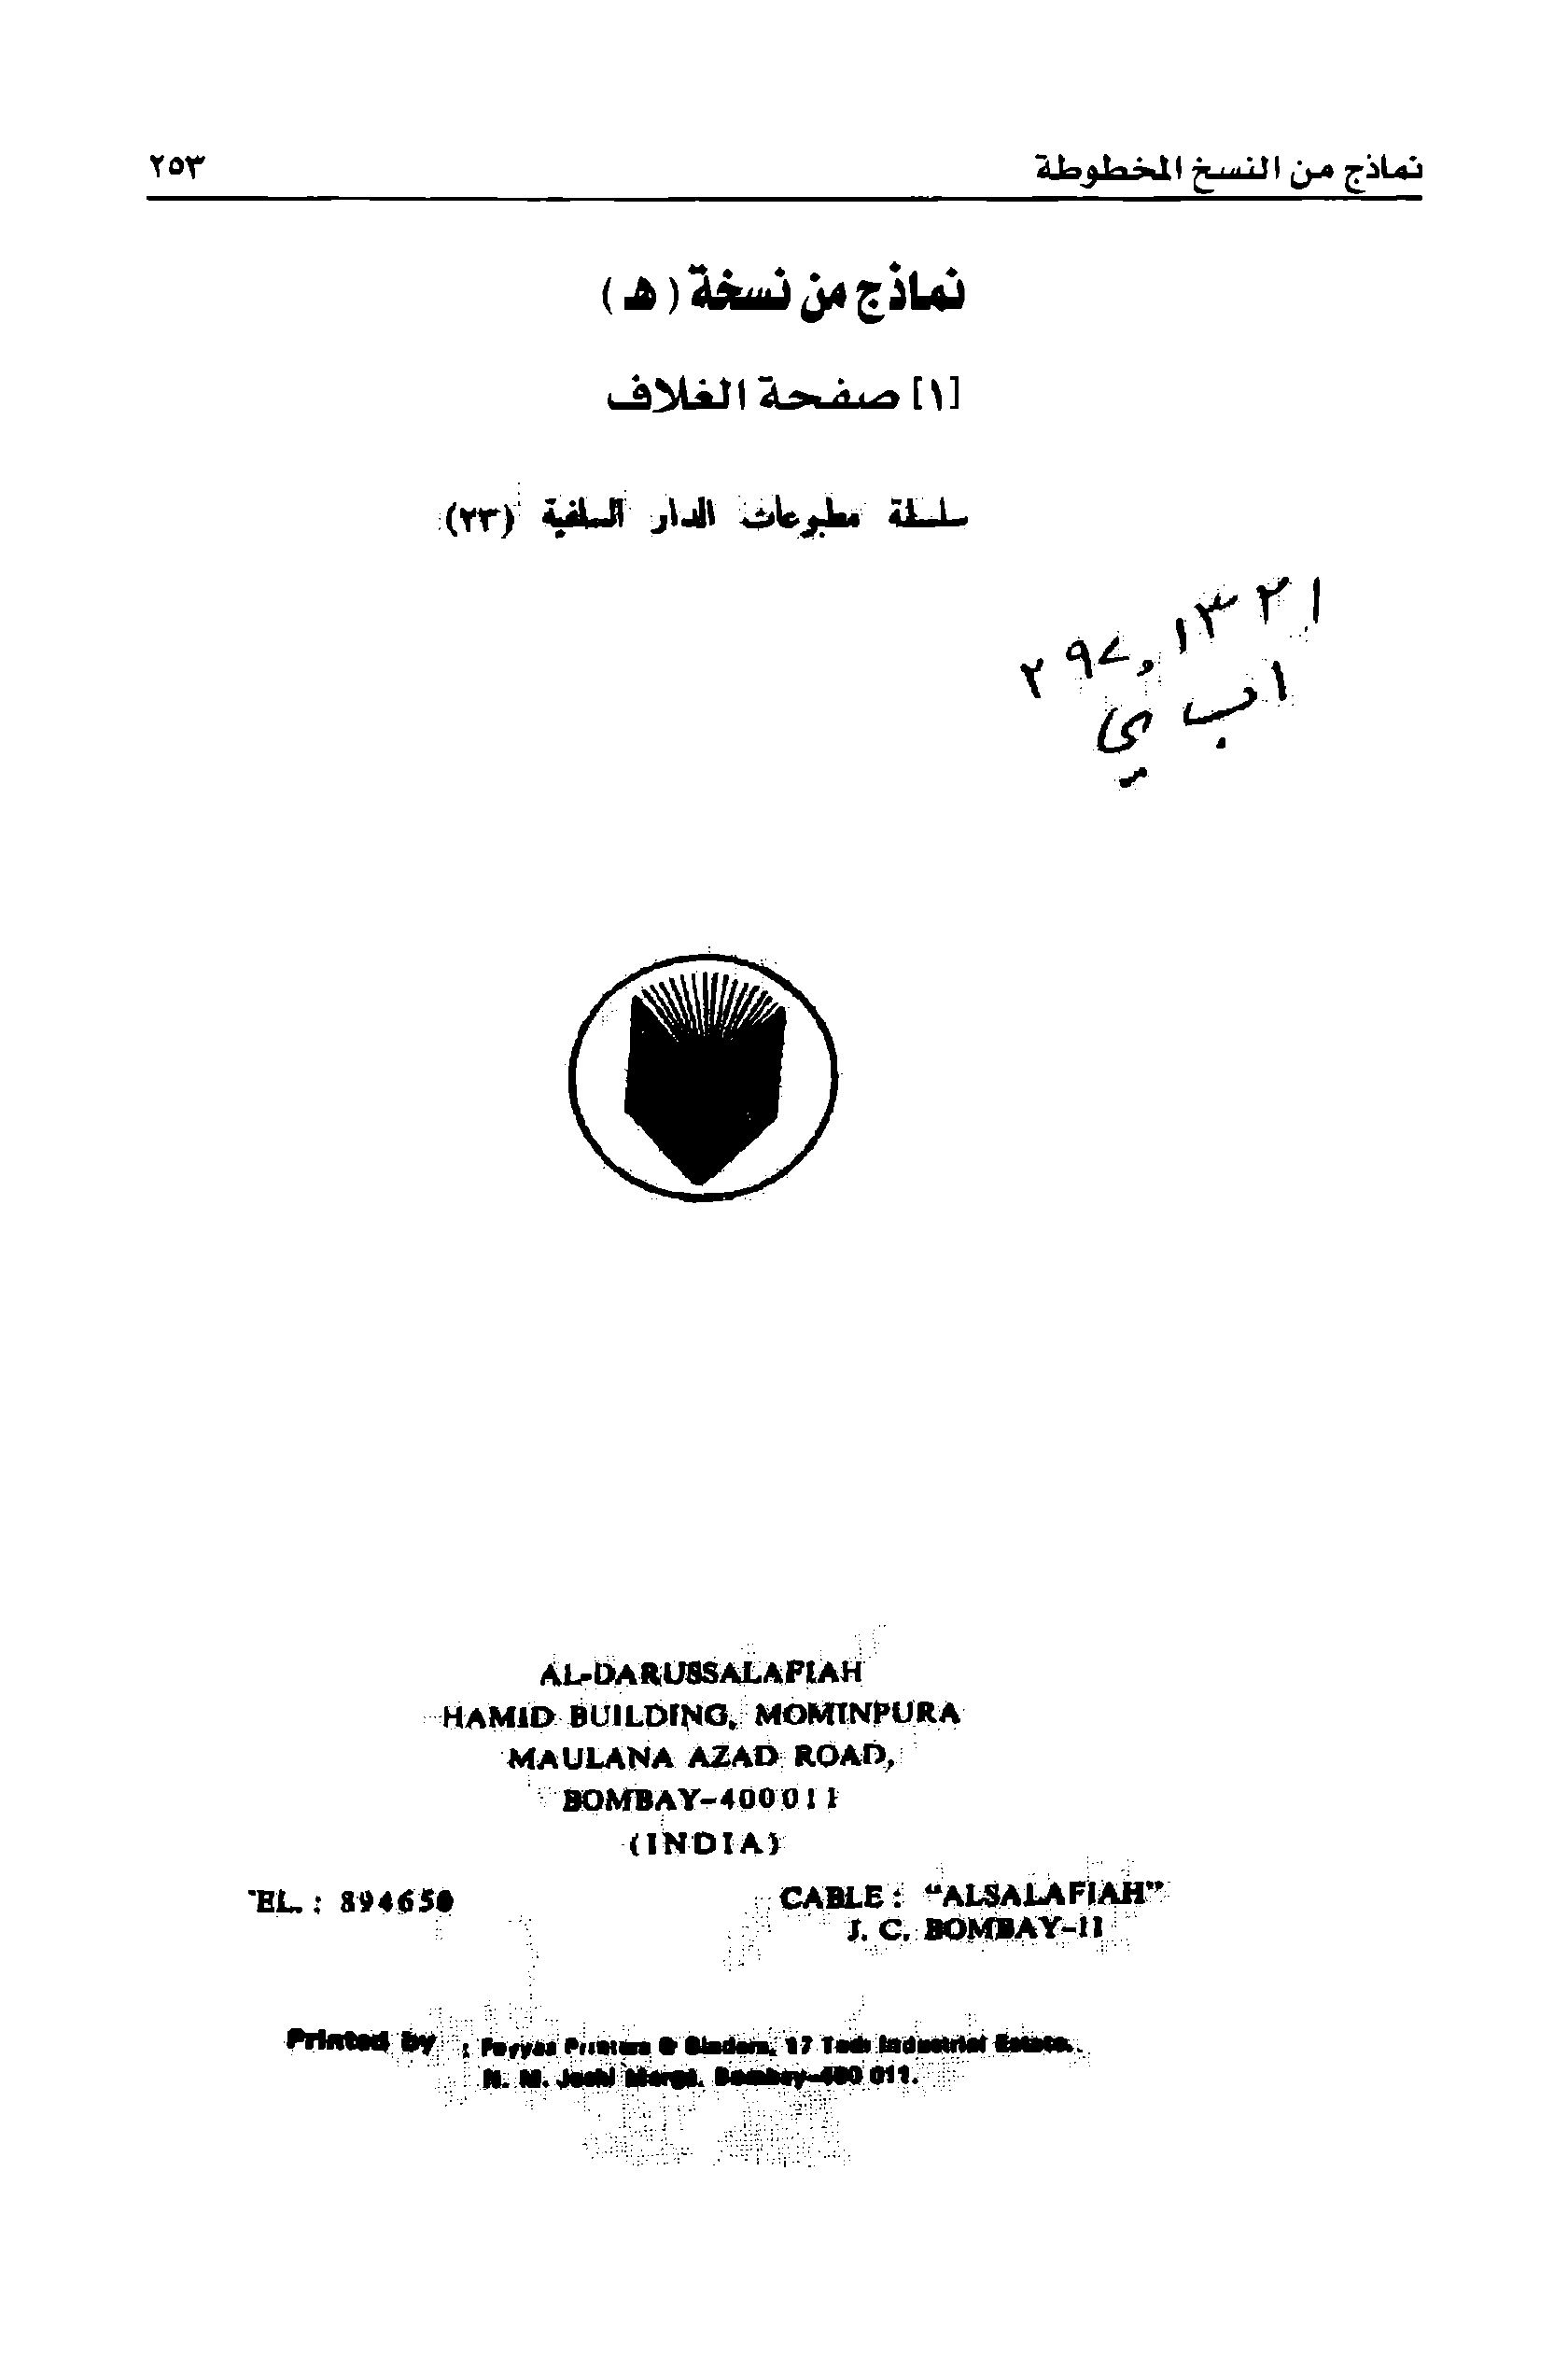 نماذج من النسخ المخطوطة ٢٥٣
نماذج من نسخة (هـ)
[١] صفحة الغلاف
سلسلة مطبوعات الدار السلفية (٢٣)
٢٩٧,١٣٢١
اب ي
AL-DARUSSALAFIAH
HAMID BUILDING, MOMINPURA
MAULANA AZAD ROAD,
BOMBAY-400011
(INDIA)
EL. : 894650
CABLE : "ALSALAFIAH"
J. C. BOMBAY-11
Printed by : Printers & Binders, 17 Industrial Estate,
N. M. Joshi Marg, Bombay-400 011.